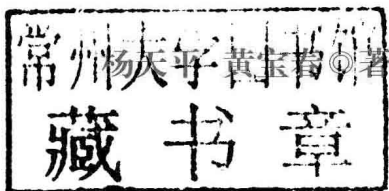 常州大学图书馆
杨天平 黄宝春◎著
藏书章